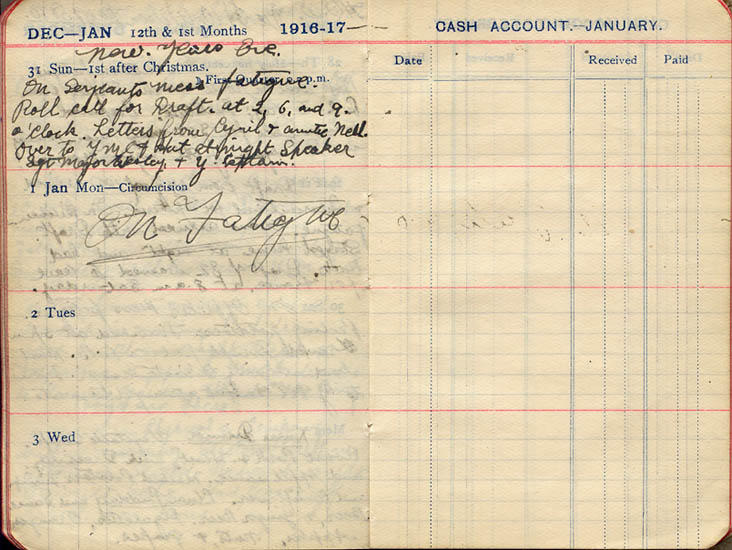 DEC—JAN 12th & 1st Months 1916-17—
New. Years Eve.
31 Sun—1st after Christmas.
First Quarter p.m.
On Sergeants mess fatigue.
Roll call for Draft. at 2, 6, and 9.
o'Clock. Letters from Cyril & auntie Nell.
Over to YMCA hut at night Speaker
Sgt Major Wesley, + Y.
1 Jan Mon—Circumcision
On Fatigue
2 Tues
3 Wed
CASH ACCOUNT.—JANUARY.
Date Received Paid